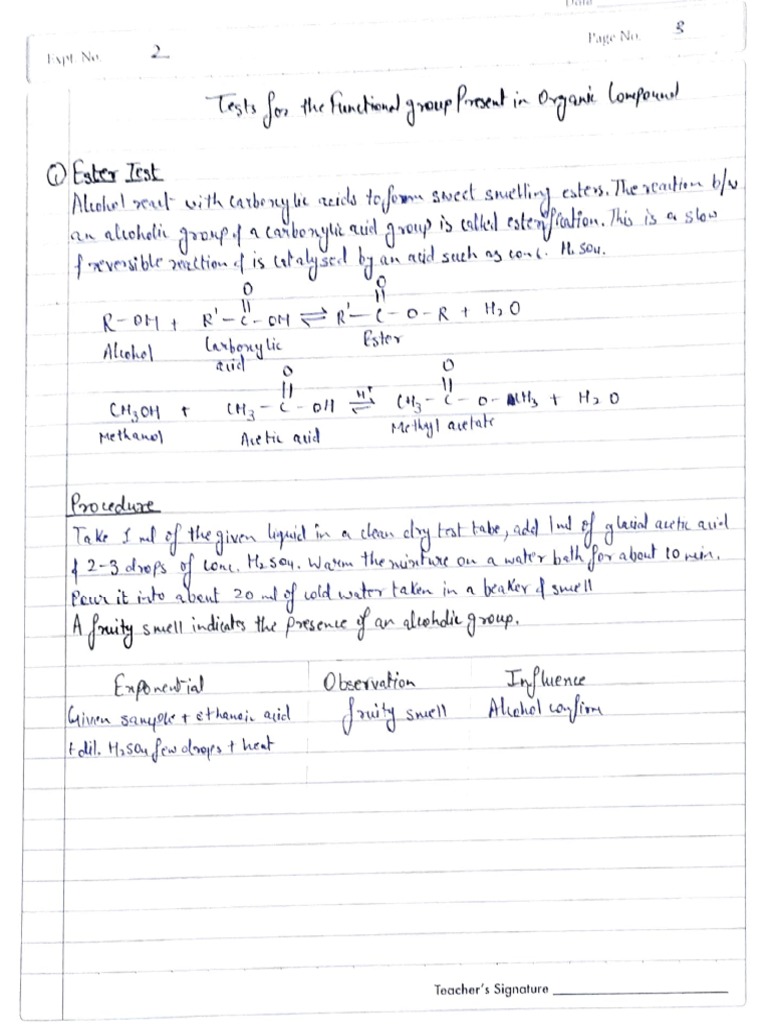 Expt. No. 2
Page No. 8
Tests for the Functional group Present in Organic Compound
① Ester Test
Alcohol react with carboxylic acids to form sweet smelling esters. The reaction b/w
an alcoholic group & a carboxylic acid group is called esterification. This is a slow
& reversible reaction & is catalysed by an acid such as conc. H₂SO₄.
O O
R-OH + R'-C-OH ⇌ R'-C-O-R + H₂O
Alcohol Carboxylic Ester
acid
O O
CH₃OH + CH₃-C-OH ⇌ H⁺ CH₃-C-O-CH₃ + H₂O
Methanol Acetic acid Methyl acetate
Procedure
Take 1 ml of the given liquid in a clean dry test tube, add 1ml of glacial acetic acid
& 2-3 drops of conc. H₂SO₄. Warm the mixture on a water bath for about 10 min.
Pour it into about 20 ml of cold water taken in a beaker & smell
A fruity smell indicates the presence of an alcoholic group.
Exponential Observation Influence
Given sample + ethanoic acid fruity smell Alcohol confirm
+ dil. H₂SO₄ few drops + heat
Teacher's Signature